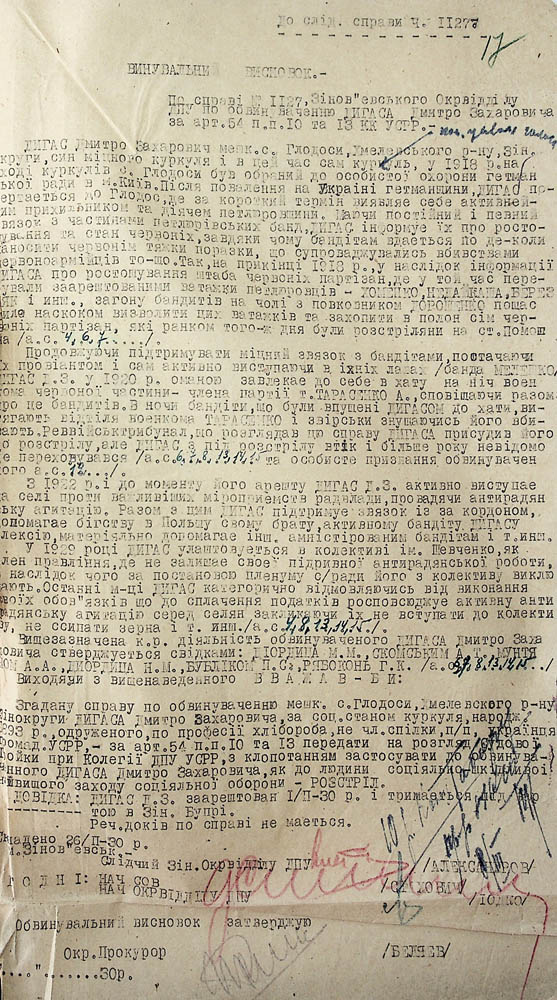 До слід. справи Ч. II27
17
ВИНУВАЛЬНИЙ ВИСНОВОК.-
По справі № II27, Зінов"евського Окрвідділу
ДПУ по обвинуваченню ДИГАСА Дмитро Захаровича
за арт.54 п.п.IO та I3 КК УСРР.-
ДИГАС Дмитро Захарович мешк.с. Глодоси, Хмелевського р-ну, Зін.
круги, син міцного куркуля і в цей час сам куркуль, у I9I8 р. на
ході куркулів с. Глодоси був обраний до особистої охорони гетман
ської ради в м.Київ. Після повалення на Україні гетманщини, ДИГАС по-
вертається до Глодос, де за короткий термін виявляе себе активней-
шим прихильником та діячем петлюровщини. Маючи постійний і певний
звязок з частинами петлюрівських банд, ДИГАС інформуе їх про росто-
шування та стан червоніх, завдяки чому бандитам вдається по де-коли
наносити червонім тяжки поразки, що супроваджувались вбивствами
червоноармійців то-що. Так, на прикінці I9I8 р., у наслідок інформації
ДИГАСА про ростошування штаба червоніх партізан, де у той час пере-
бували заарештованими ватажки петлюровців - ХОМЕНКО, НЕДАЙКАША, БЕРЕЗ
ЯК і инш., загону бандитів на чолі з полковником ДОРОШЕНКО пощас
тило наскоком визволити цих ватажків та захопити в полон сім чер-
воніх партізан, які ранком того-ж дня були розстріляни на ст. Помош
на /а.с. 4,6,7..../.
Продовжуючи підтримувати міцний звязок з бандітами, постачаючи
їх провіантом і сам активно виступаючи в їхніх лавах /банда МЕЛЕШКО/
ДИГАС Д.З. у I920 р. оманою завлекае до себе в хату на ніч воен
кома червоної частини- члена партії т. ТАРАСЕНКО А., сповіщаючи разом
про це бандитів. В ночи бандіти, що були впущені ДИГАСОМ до хати, ви-
тягають відтіля военкома ТАРАСЕНКО і звірьски знущаючись його вби-
вають. Ревнійськтрибунал, що розглядав цю справу ДИГАСА присудив його
до розстрілу, але ДИГАС з під розстрілу втік і більше року невідомо
де переховувався /а.с. 6,7,8,13,14,15 та особисте признання обвинувачен
ного а.с. 12.../.
З I922 р. і до моменту його арешту ДИГАС Д.З. активно виступае
на селі проти важливіших міроприемств радвлади, провадячи антирадян
ську агитацію. Разом з цим ДИГАС підтримуе звязок із за кордоном,
допомагае бігству в Польщу свому брату, активному бандіту ДИГАСУ
Олексію, матеріяльно допомагае інш. амністірованим бандітам і т.инш.
У I929 році ДИГАС улаштовуеться в колективі ім. Шевченко, як
член правління, де не залишае своеї підривної антирадянської роботи,
в наслідок чого за постановою пленуму с/ради його з колективу виклю
чають. Останні м-ці ДИГАС категорично відмовляючись від виконання
своїх обов"язків що до сплачення податків росповсюджуе активну анти
радянську агитацію серед селян, закликаючи їх не вступати до колекти
ву, не ссипати зерна і т. инш. /а.с. 4,8,13,14,15./.
Вищезазначена к.р. діяльність обвинуваченого ДИГАСА Дмитро Заха
ровича стверджується свідками: ДІОРДИЦА М.М., СКОМСЬКИМ А.Т., МУНТЯ
НОМ А.А., ДІОРДИЦА Н.М., БУБЛІКОМ П.С., РЯБОКОНЬ Г.К. /а.с. 8,13,14,15../
Виходячи з вищенаведенного В В А Ж А В - Б И:
Згадану справу по обвинуваченню мешк. с. Глодоси, Хмелевского р-ну
Зінокруги ДИГАСА Дмитро Захаровича, за соц.станом куркуля, народж.
I893 р., одруженого, по професії хлібороба, не чл. спілки, п/п, українця
громад. УСРР, - за арт.54 п.п.IO та I3 передати на розгляд Судової
Тройки при Колегії ДПУ УСРР, з клопотанням застосувати до обвинува-
ченного ДИГАСА Дмитро Захаровича, як до людини соціально-шкідливої
найвищого заходу соціальної оборони - РОЗСТРІЛ.
ДОВІДКА: ДИГАС Д.З. заарештован I/П-30 р. і тримається під вар
тою в Зін. Бупрі.
Реч. доків по справі не мается.
Складено 26/П-30 р.
м. Зінов"евськ.
Слідчий Зін. Окрвідділу ДПУ /АЛЕКСАНДРОВ/
ЗГОДНІ: НАЧ СОВ
НАЧ ОКРВІДДІЛУ ДПУ
Обвинувальний висновок затверджую
Окр. Прокурор /БЕЛЯЕВ/
"....."......30р.